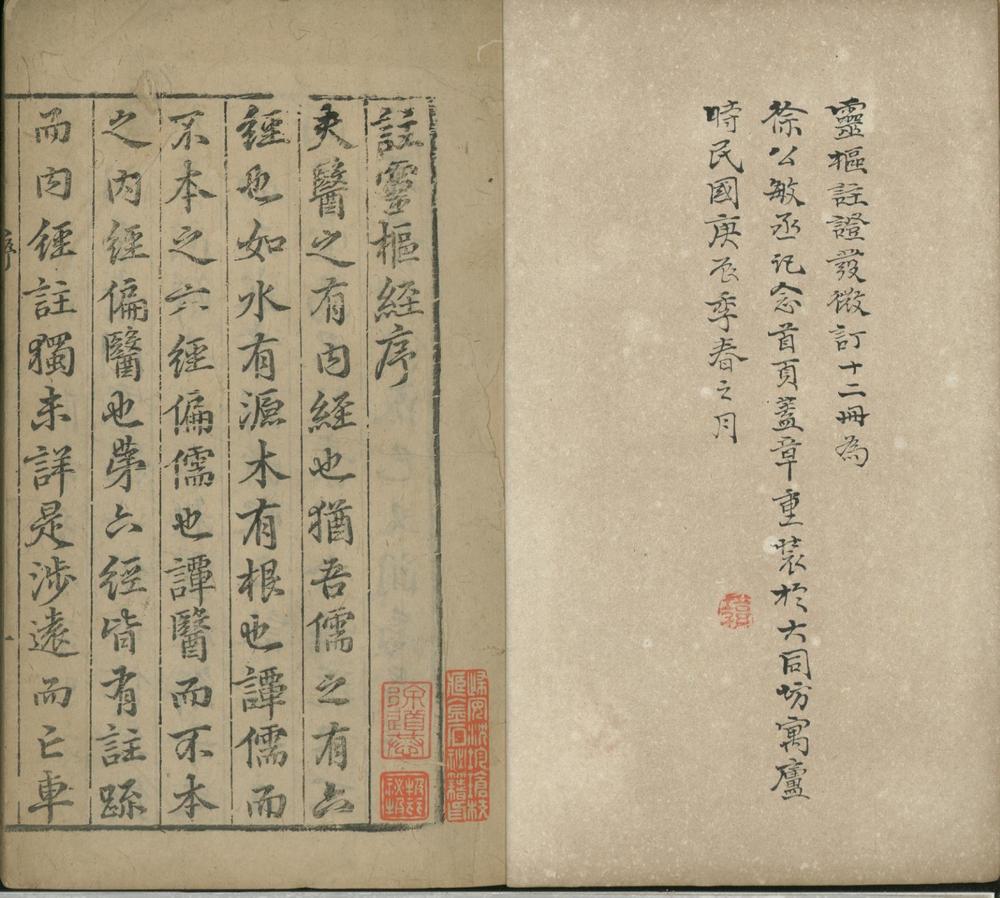 靈樞註證發微訂十二冊為
徐公敏丞記念首頁蓋章重裝於大同坊寓廬
時民國庚辰季春之月
註靈樞經序
夫醫之有內經也猶吾儒之有六
經也如水有源木有根也譚儒而
不本之六經偏儒也譚醫而不本
之內經偏醫也第六經皆有註疏
而內經註獨未詳是涉遠而亡車
序
一